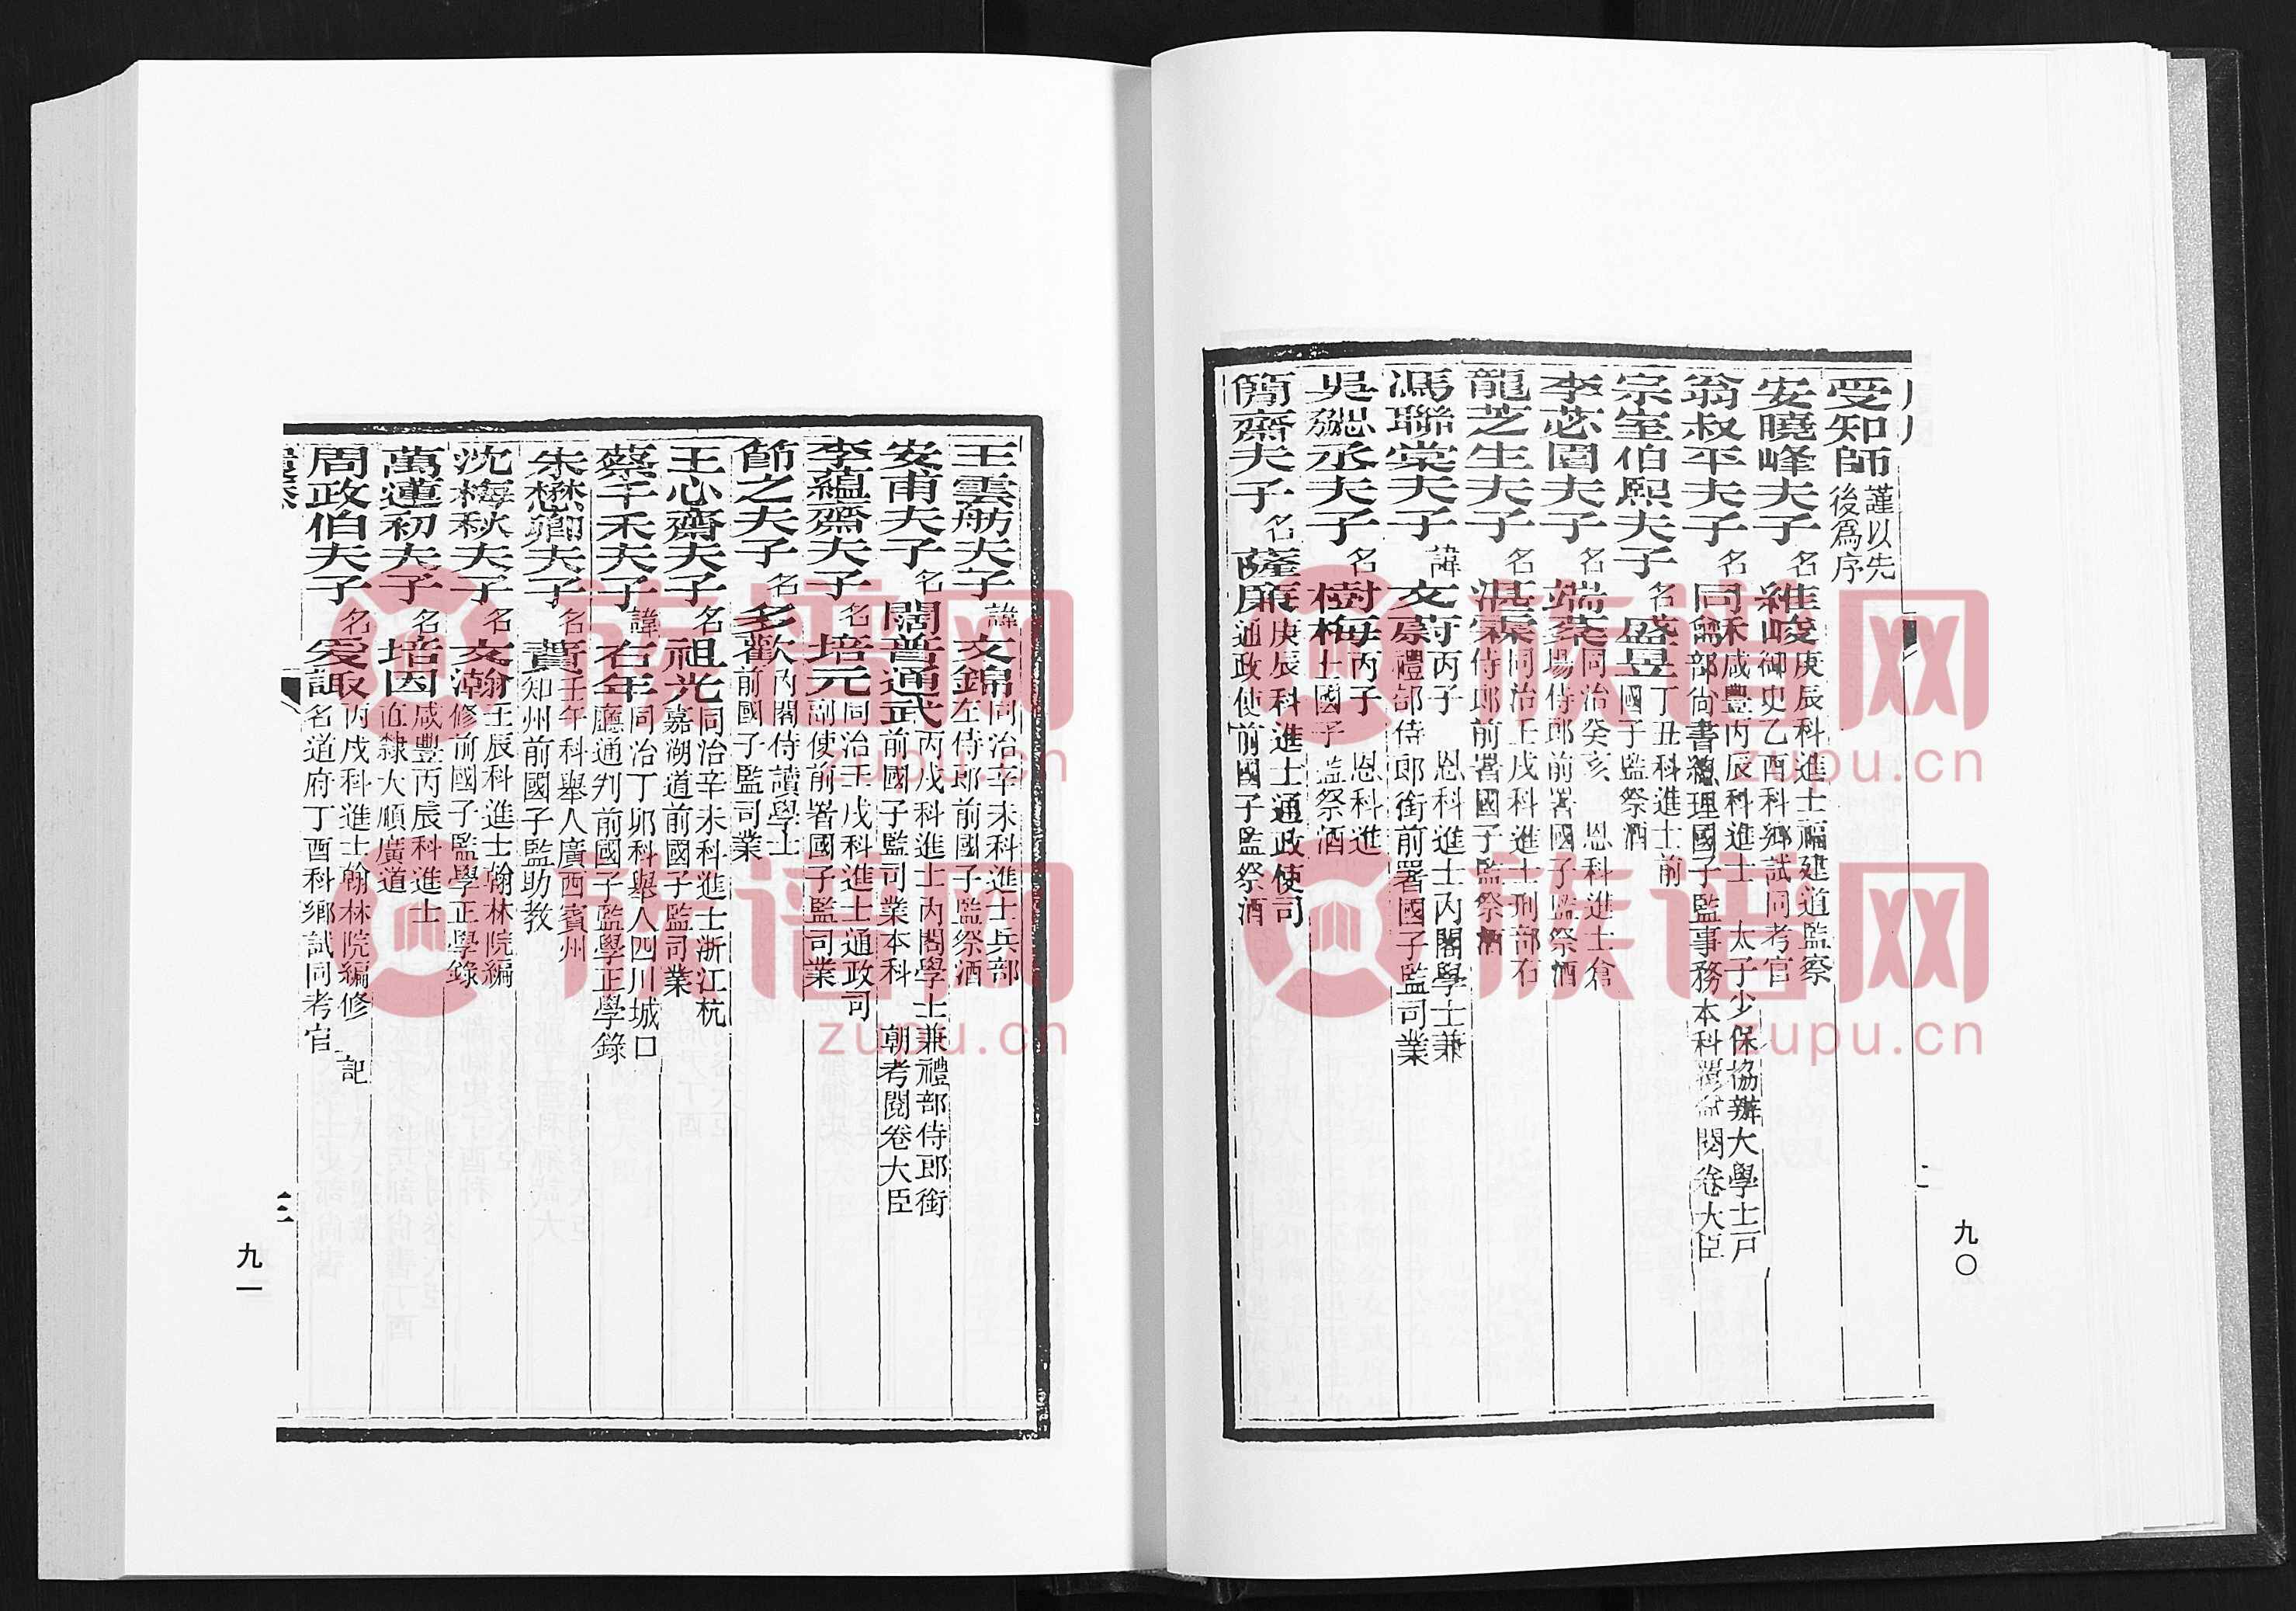 受知師 謹以先
後爲序
安曉峰夫子 名維峻 庚辰科進士福建道監察
御史乙酉科鄉試同考官
翁叔平夫子 名同龢 咸豐丙辰科進士 太子少保協辦大學士戸
部尙書總理國子監事務本科 閱卷大臣
宗室伯熙夫子 名盛昱 丁丑科進士前
國子監祭酒
李苾園夫子 名端棻 同治癸亥 恩科進士倉
場侍郎前署國子監祭酒
龍芝生夫子 名湛霖 同治壬戌科進士刑部右
侍郎前署國子監祭酒
馮聯棠夫子 諱文蔚 丙子 恩科進士內閣學士兼
禮部侍郎銜前署國子監司業
吳 丞夫子 名樹梅 丙子 恩科進
士國子監祭酒
簡齋夫子 名薩廉 庚辰科進士通政使司
通政使前國子監祭酒
九〇
王雲舫夫子 諱文錦 同治辛未科進士兵部
左侍郎前國子監祭酒
安甫夫子 名闊普通武 丙戌科進士內閣學士兼禮部侍郎銜
前國子監司業本科 朝考閱卷大臣
李蘊齋夫子 名培元 同治壬戌科進士通政司
副使前署國子監司業
節之夫子 名多歡 內閣侍讀學士
前國子監司業
王心齋夫子 名祖光 同治辛未科進士浙江杭
嘉湖道前國子監司業
蔡千禾夫子 諱右年 同治丁卯科舉人四川城口
廳通判前國子監學正學錄
朱懋卿夫子 名 壬午科舉人廣西賓州
知州前國子監助教
沈梅秋夫子 名文瀚 壬辰科進士翰林院編
修前國子監學正學錄
萬蓮初夫子 名培因 咸豐丙辰科進士
直隸大順廣道
周政伯夫子 名爰諏 丙戌科進士翰林院編修 記
名道府丁酉科鄉試同考官
三
九一
族谱网
zupu.cn
族谱网
zupu.cn
族谱网
zupu.cn
族谱网
zupu.cn